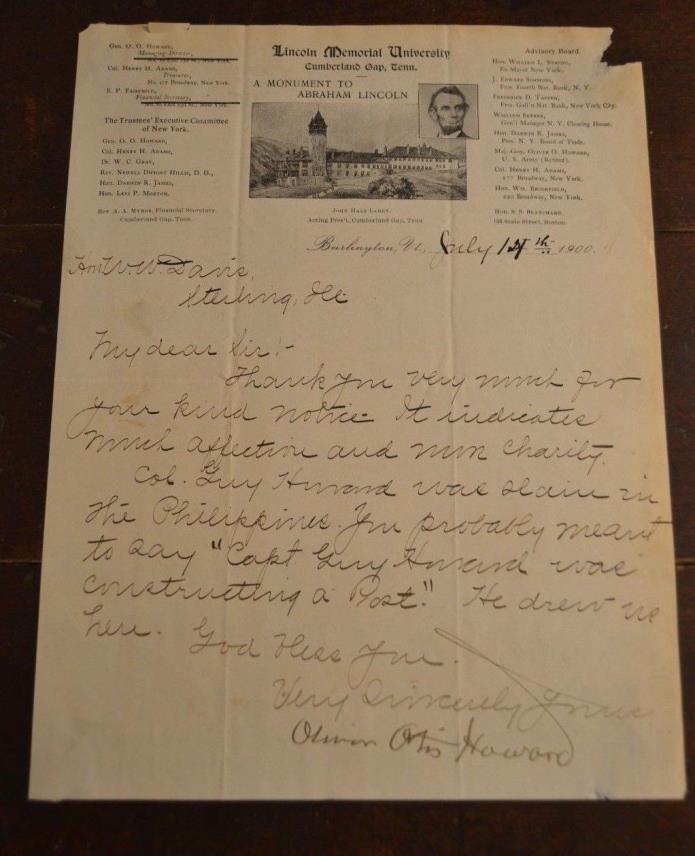 Gen. O. O. Howard,
Managing Director,
Col. Henry H. Adams,
Treasurer,
No. 177 Broadway, New York.
E. P. Fairchild,
Financial Secretary,
The Trustees' Executive Committee
of New York.
Gen. O. O. Howard,
Col. Henry H. Adams,
Dr. W. C. Gray,
Rev. Newell Dwight Hillis, D. D.,
Hon. Darwin R. James,
Hon. Levi P. Morton,
Rev. A. A. Myers, Financial Secretary,
Cumberland Gap, Tenn.
Lincoln Memorial University
Cumberland Gap, Tenn.
A MONUMENT TO
ABRAHAM LINCOLN
John Hale Larry,
Acting Pres't, Cumberland Gap, Tenn
Advisory Board.
Hon. William L. Strong,
Ex-Mayor New York.
J. Edward Simmons,
Pres. Fourth Nat. Bank, N. Y.
Frederick D. Tappen,
Pres. Gall'n Nat. Bank, New York City.
William Sherer,
Gen'l Manager N. Y. Clearing House.
Hon. Darwin R. James,
Pres. N. Y. Board of Trade.
Maj.-Gen. Oliver O. Howard,
U. S. Army (Retired).
Col. Henry H. Adams,
177 Broadway, New York.
Hon. Wm. Brookfield,
Broadway, New York.
Hon. S. S. Blanchard,
State Street, Boston.
Burlington, Vt., July th 1900.
Hon W. W. Davis,
Sterling, Ill
My dear Sir:-
Thank you very much for
your kind notice. It indicates
much affection and much charity.
Col. Guy Howard was slain in
the Philippines. You probably meant
to say "Capt. Guy Howard was
constructing a Post." He drew us
here. God bless you.
Very Sincerely Yours
Oliver Otis Howard